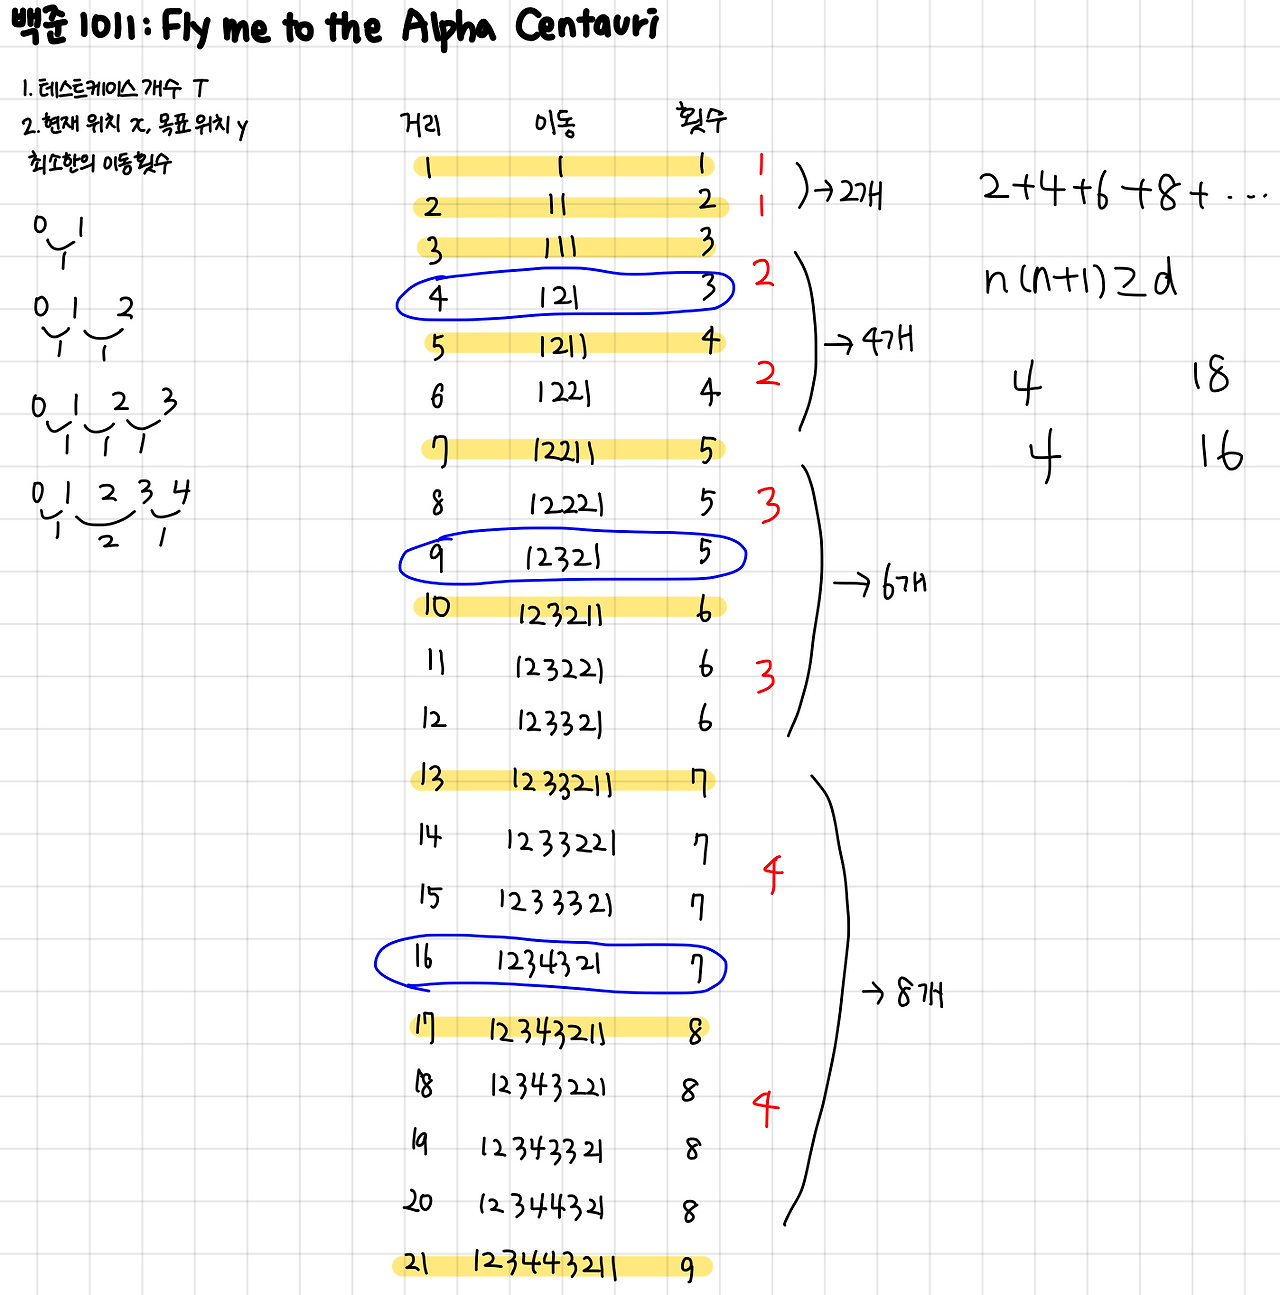 백준 1011 : Fly me to the Alpha Centauri
1. 테스트케이스 개수 T
2. 현재 위치 x, 목표 위치 y
최소한의 이동 횟수
0 1
1
0 1 2
1 1
0 1 2 3
1 1 1
0 1 2 3 4
1 2 1
거리 이동 횟수
1 1 1 1
2 11 2 1
→ 2개
3 111 3
4 121 3
2
5 1211 4
6 1221 4
2
→ 4개
7 12211 5
8 12221 5
9 12321 5
3
10 123211 6
11 123221 6
12 123321 6
3
→ 6개
13 1233211 7
14 1233221 7
15 1233321 7
16 1234321 7
4
17 12343211 8
18 12343221 8
19 12343321 8
20 12344321 8
4
→ 8개
21 123443211 9
2+4+6+8+ ...
n(n+1)≥d
4 18
4 16